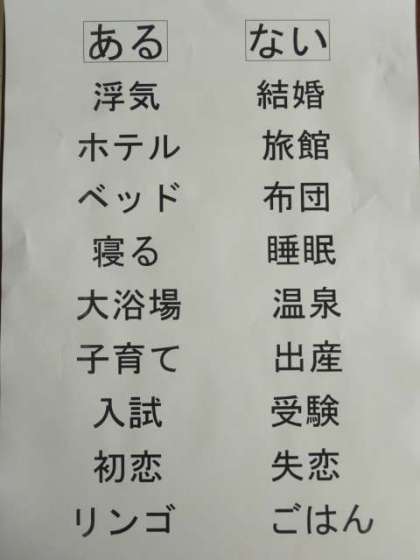 ある ない
浮気 結婚
ホテル 旅館
ベッド 布団
寝る 睡眠
大浴場 温泉
子育て 出産
入試 受験
初恋 失恋
リンゴ ごはん